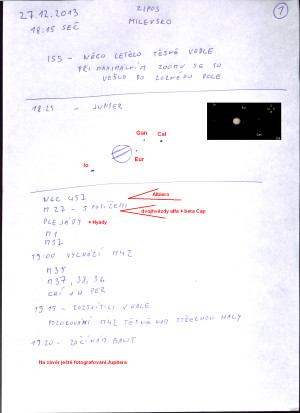 27.12.2013
ZIPOS
MILEVSKO
1
18:15 SEČ
ISS - NĚCO LETĚLO TĚSNĚ VEDLE
PŘI MAXIMÁLNÍM ZOOMU SE TO
VEŠLO DO ZORNÉHO POLE
18:25 - JUPITER
Gan Cal
Eur
Io
NGC 457
Albireo
M27 - S POTÍŽEMI
dvojhvězdy alfa + beta Cap
PLEJÁDY + Hyády
M1
M57
19:00 VYCHÁZÍ M42
M35
M37, 38, 36
CHÍ + H PER
19:15 - ROZSVÍTILI V HALE
POZOROVÁNÍ M42 TĚSNĚ NAD STŘECHOU HALY
19:20 - ZAČÍNÁM BALIT
Na závěr ještě fotografování Jupitera